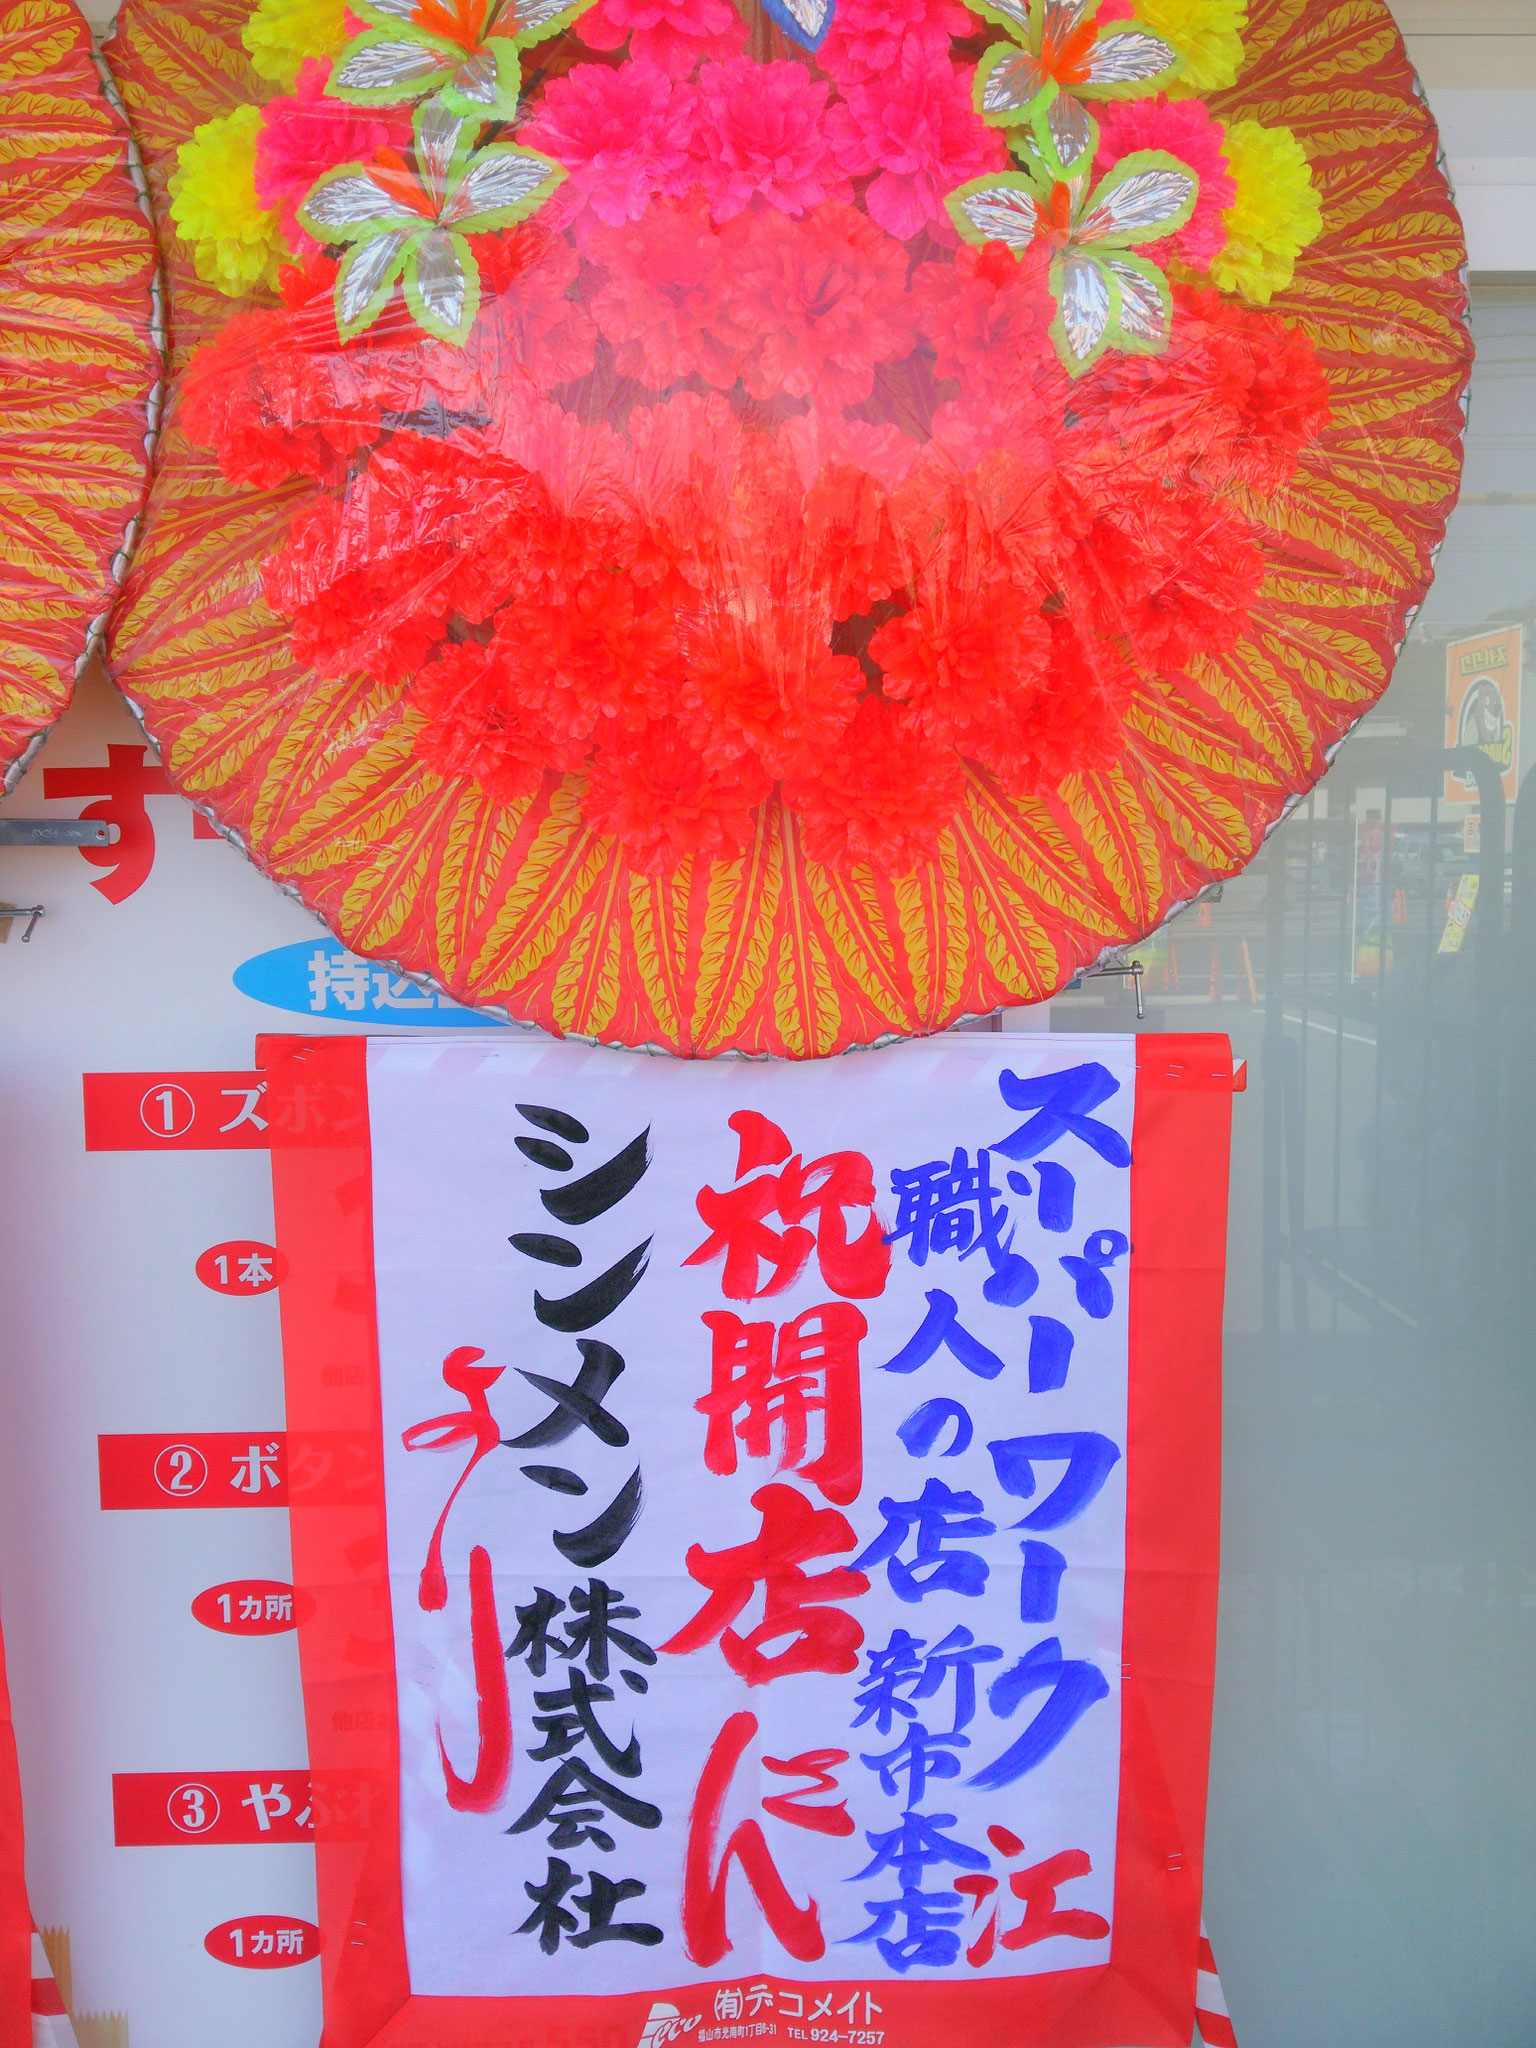 スーパーワーク
職人の店 新市本店
江
祝開店
さん
シンメン株式会社
より
(有)デコメイト
Deco
福山市光南町1丁目6-31 TEL 924-7257
す
持込
① ズボン
1本
② ボタン
1カ所
③ やぶれ
1カ所